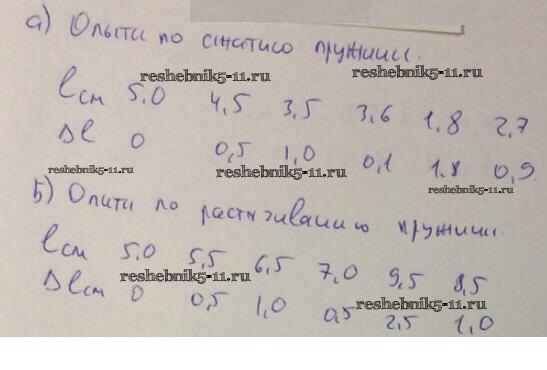 а) Опыты по сжатию пружины.
resheba5-11.ru resheba5-11.ru
lсм 5,0 4,5 3,5 3,6 1,8 2,7
Δl 0 0,5 1,0 0,1 1.8 0,9
resheba5-11.ru resheba5-11.ru resheba5-11.ru
Б) Опыти по растягиванию пружины.
lсм 5,0 5,5 6,5 7,0 9,5 8,5
resheba5-11.ru resheba5-11.ru
Δlсм 0 0,5 1,0 0,5 2,5 1,0